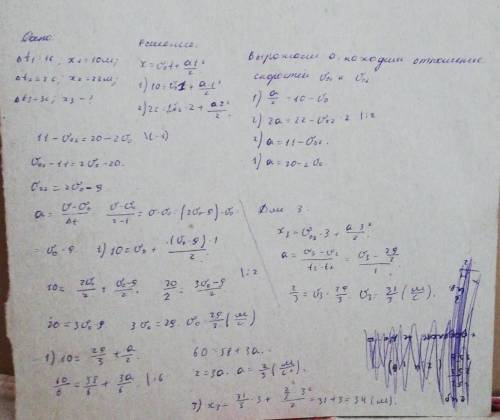 Дано:
Δt₁ = 1с, x₁ = 10м;
Δt₂ = 2с, x₂ = 22м;
Δt₃ = 3с, x₃ - ?
Решение.
x = v₀t + at²/2
1) 10 = v₀1 + a/2
2) 22 = v₀₂ · 2 + a2²/2.
Выражаем a, находим отношение
скоростей v₀₁ и v₀₂
1) a/2 = 10 - v₀
2) 2a = 22 - v₀₂ · 2 |:2
2) a = 11 - v₀₂.
1) a = 20 - 2v₀
11 - v₀₂ = 20 - 2v₀ |(-1)
v₀₂ - 11 = 2v₀ - 20.
v₀₂ = 2v₀ - 9
a = v - v₀/Δt v - v₀/2 - 1 = v - v₀ = (2v₀ - 9) - v₀ =
= v₀ - 9 1) 10 = v₀ + (v₀ - 9) · 1/2
10 = 2v₀/2 + v₀ - 9/2 20/2 = 3v₀ - 9/2 |:2
20 = 3v₀ - 9 3v₀ = 29 v₀ = 29/3 (м/с)
1) 10 = 29/3 + a/2
60/6 = 58/6 + 3a/6 |·6
60 = 58 + 3a.
2 = 3a. a = 2/3 (м/с²)
Для 3.
x₃ = v₀₃ · 3 + a · 3²/2
2/3 = v₃ - 29/3 v₃ = 31/3 (м/с).
3) x₃ = 31/3 · 3 + 2/3 · 3²/2 = 31 + 3 = 34 (м).